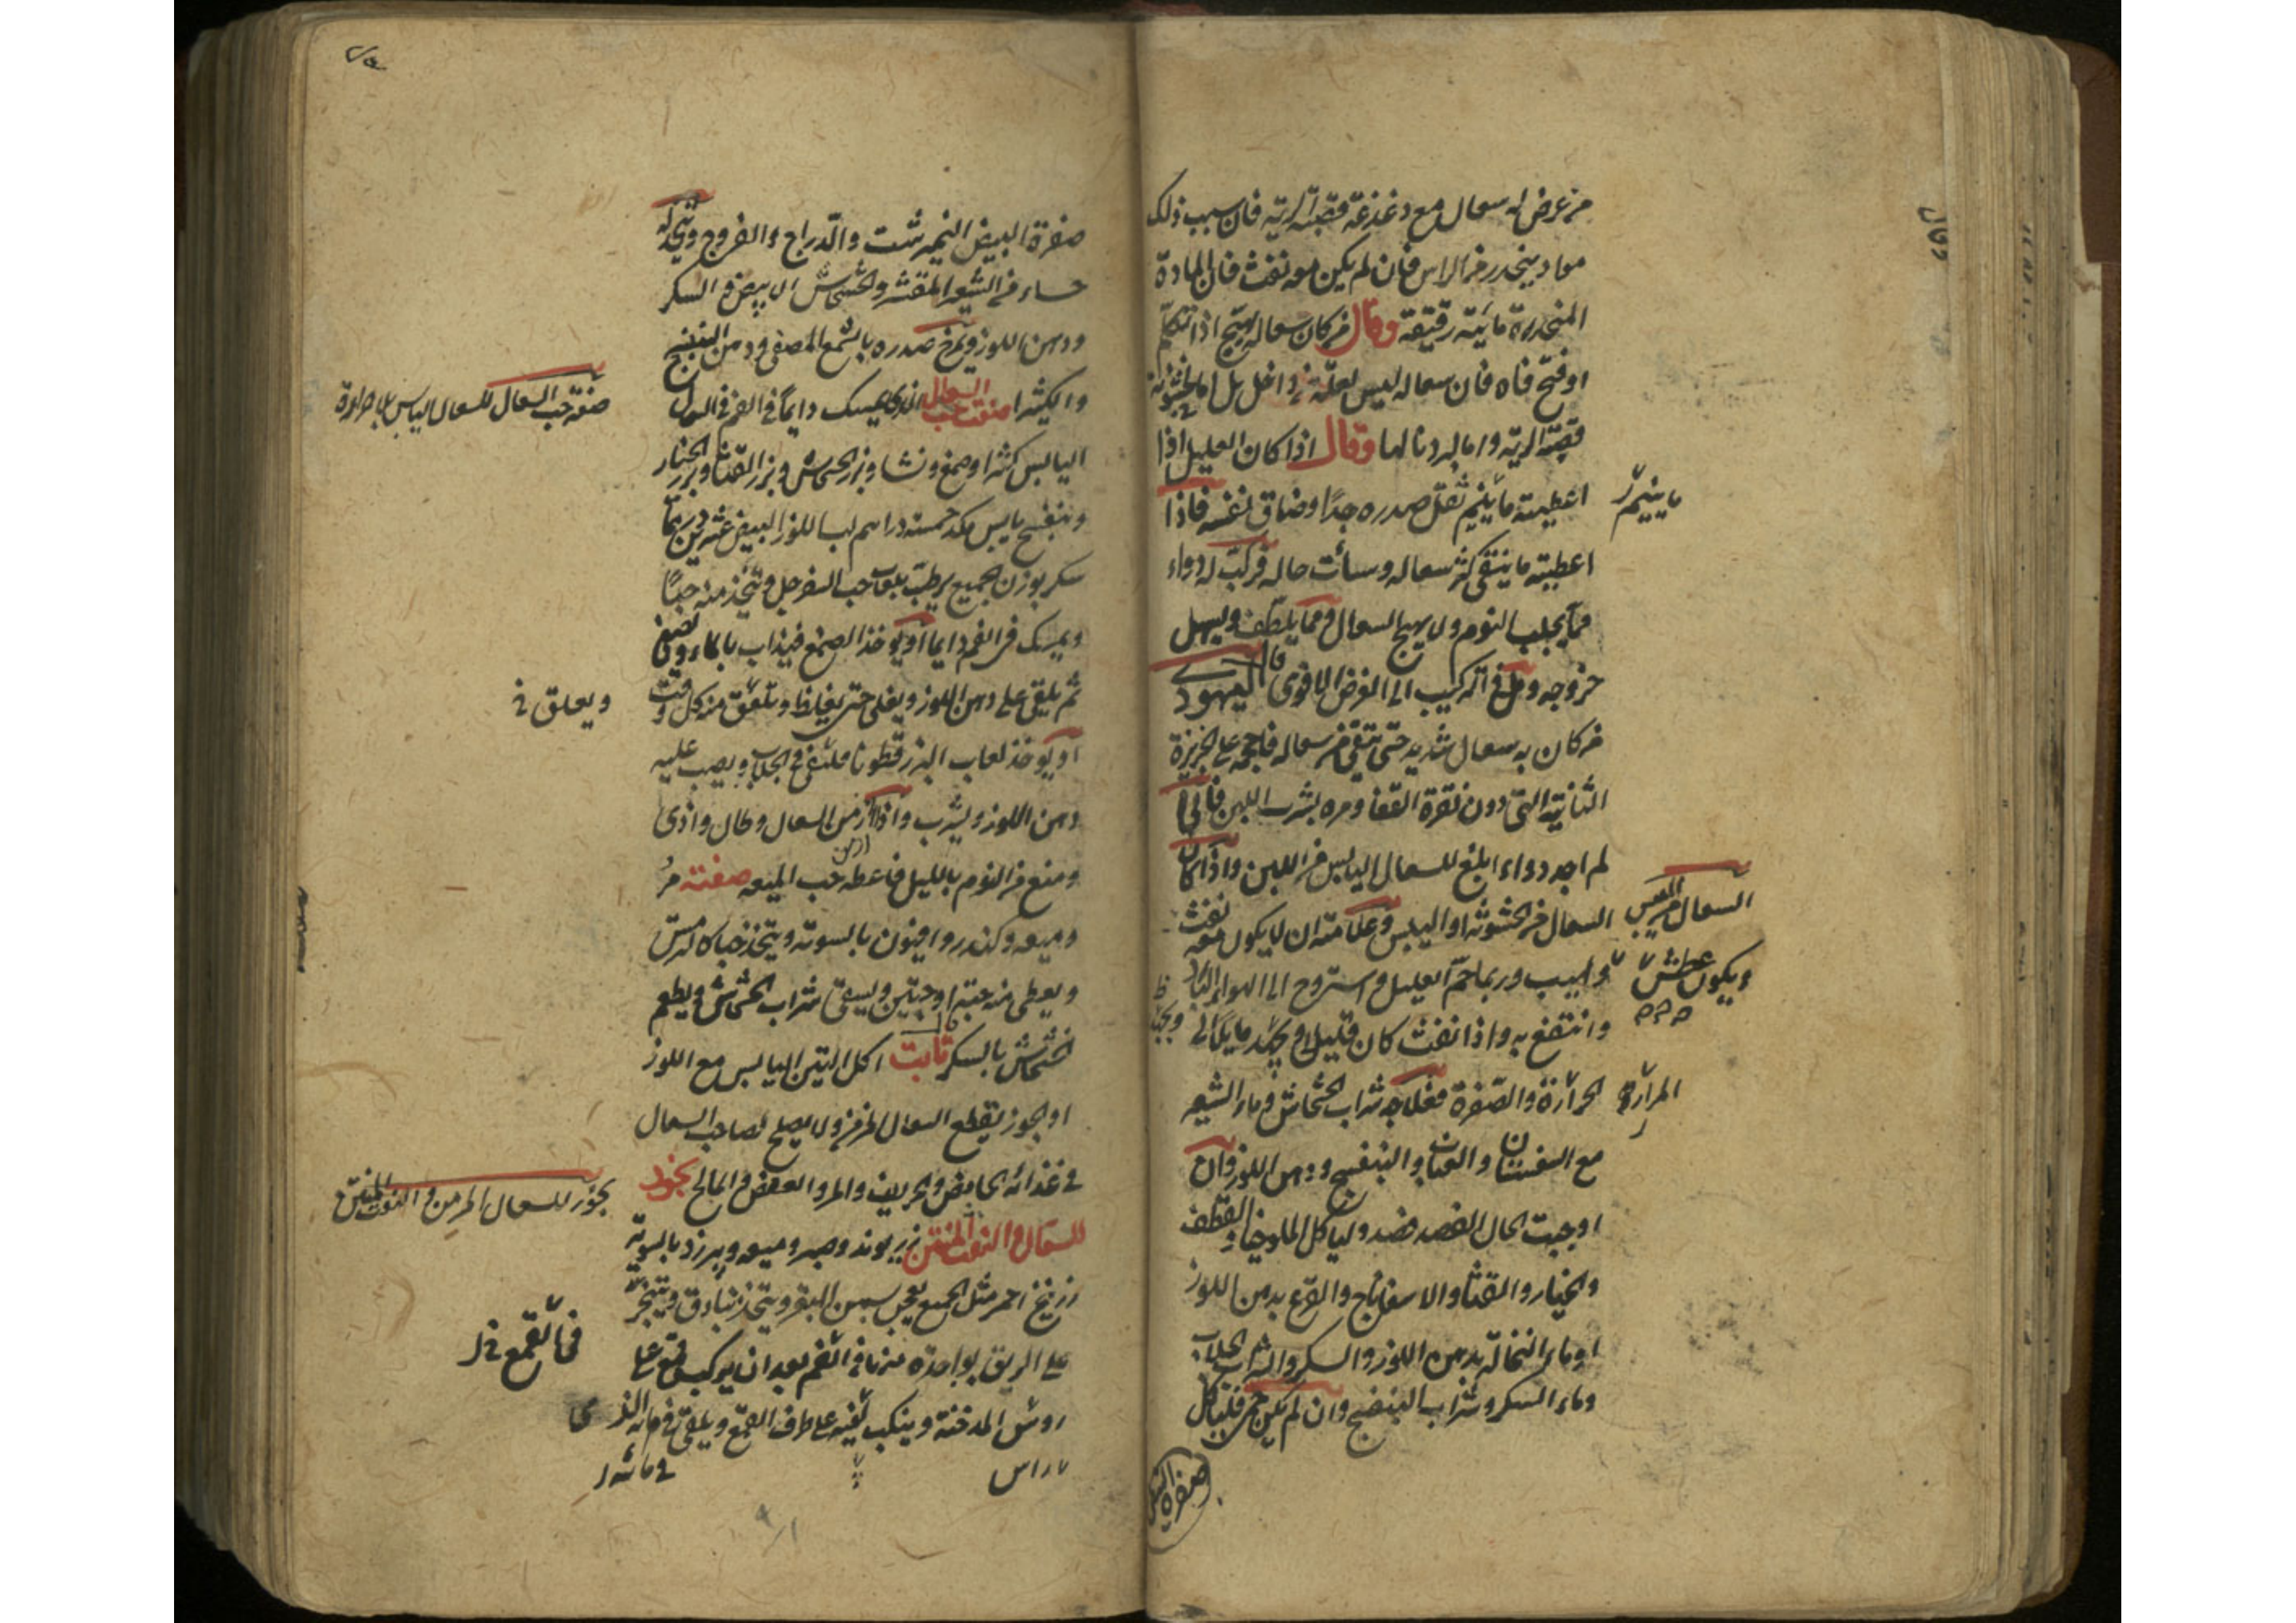 من عرض له سعال مع دغدغة قصبة الرية فان سبب ذلك
مواد ينحدر من الراس فان لم يكن معه نفث فان المادة
المنحدرة مائية رقيقة وقال من كان سعاله يهيج اذا تكلم
او فتح فاه فان سعاله ليس لعلة من داخل بل اما لخشونة في
قصبة الرية واما لبرد نالها وقال اذا كان العليل اذا
اعطيته ما ينيم ثقل صدره جدا وضاق نفسه فاذا
ما ينيم
اعطيته ما ينقي كثر سعاله وسأت حاله فركب له دواء
مما يجلب النوم ولا يهيج السعال ومما يلطف ويسهل
خروجه ومل في التركيب الى الغرض الاقوى قال اليهودي
من كان به سعال شديد حتى يتقي من سعاله فاحجمه على الخريزة
الثانية التي دون نقرة القفا ومره بشرب اللبن فاني
لم اجد دواء ابلغ للسعال اليابس من اللبن واذا كان
السعال من الخشونة او اليبس وعلامته ان لا يكون معه نفث
السعال من اليبس
ولهيب وربما حم العليل واستروح الى الهواء البارد
ويكون عطش
وانتفع به واذا نفث كان قليلا ويجد ما يلي
الحرارة والصفرة فعلاجه شراب الخشخاش وماء الشعير
المرارة
مع السفستان والعناب والبنفسج ودهن اللوز وان
اوجبت الحال الفصد فصد ولياكل الملوخيا والقطف
والخيار والقثا والاسفاناج والقرع بدهن اللوز
او ماء النخالة بدهن اللوز والسكر والشراب الجلاب
وماء السكر وشراب البنفسج وان لم تكن حمى فلياكل
صفرة البيض
صفرة البيض النيمرشت والدراج والفروج ويتخذ له
حساء من الشعير المقشر والخشخاش الابيض والسكر
ودهن اللوز ويمرخ صدره بالشمع المصفى ودهن البنفسج
والكثيرا صفة حب السعال الذي يمسك دايما في الفم في السعال
صفة حب السعال للسعال اليابس بلا حرارة
اليابس كثيرا وصمغ ونشا وبزر الخشخاش وبزر القثا وبزر الخيار
وبنفسج يابس مكد خمسة دراهم لب اللوز البيض عشرين درهما
سكر بوزن الجميع يرطب بلعاب حب السفرجل ويتخذ منه حبا
ويمسك في الفم دايما او يؤخذ الصمغ فيذاب بالماء ويصفى
ثم يلقى على دهن اللوز ويغلى حتى يغلظ ويلعق منه كل وقت
ويعلق في
او يؤخذ لعاب البزر قطونا فيلقى في الجلاب ويصب عليه
دهن اللوز ويشرب واذا ازمن السعال وطال واذى
ازمن
ومنع من النوم بالليل فاعطه حب الميعه صفته مر
وميعه وكندر وافيون بالسوية ويتخذ حبا كالترمس
ويعطى منه حبة او حبتين ويسقى شراب الخشخاش ويطعم
خشخاش بالسكر قال ثابت اكل التين اليابس مع اللوز
او الجوز يقطع السعال المزمن ولا يصلح لصاحب السعال
في غذائه الحامض والحريف والمر والعفص والمالح بخور
للسعال والنفث المنتن زريوند وصبر وميعه وبرزد بالسوية
بخور للسعال المزمن والنفث المنتن
زرنيخ احمر مثل الجميع يعجن بسمن البقر ويتخذ بنادق ويتبخر
على الريق بواحدة منها في الفم بعد ان يركب قمع على
فم القمع
روس المدخنة وينكب بفيه على طرف القمع ويلقي في